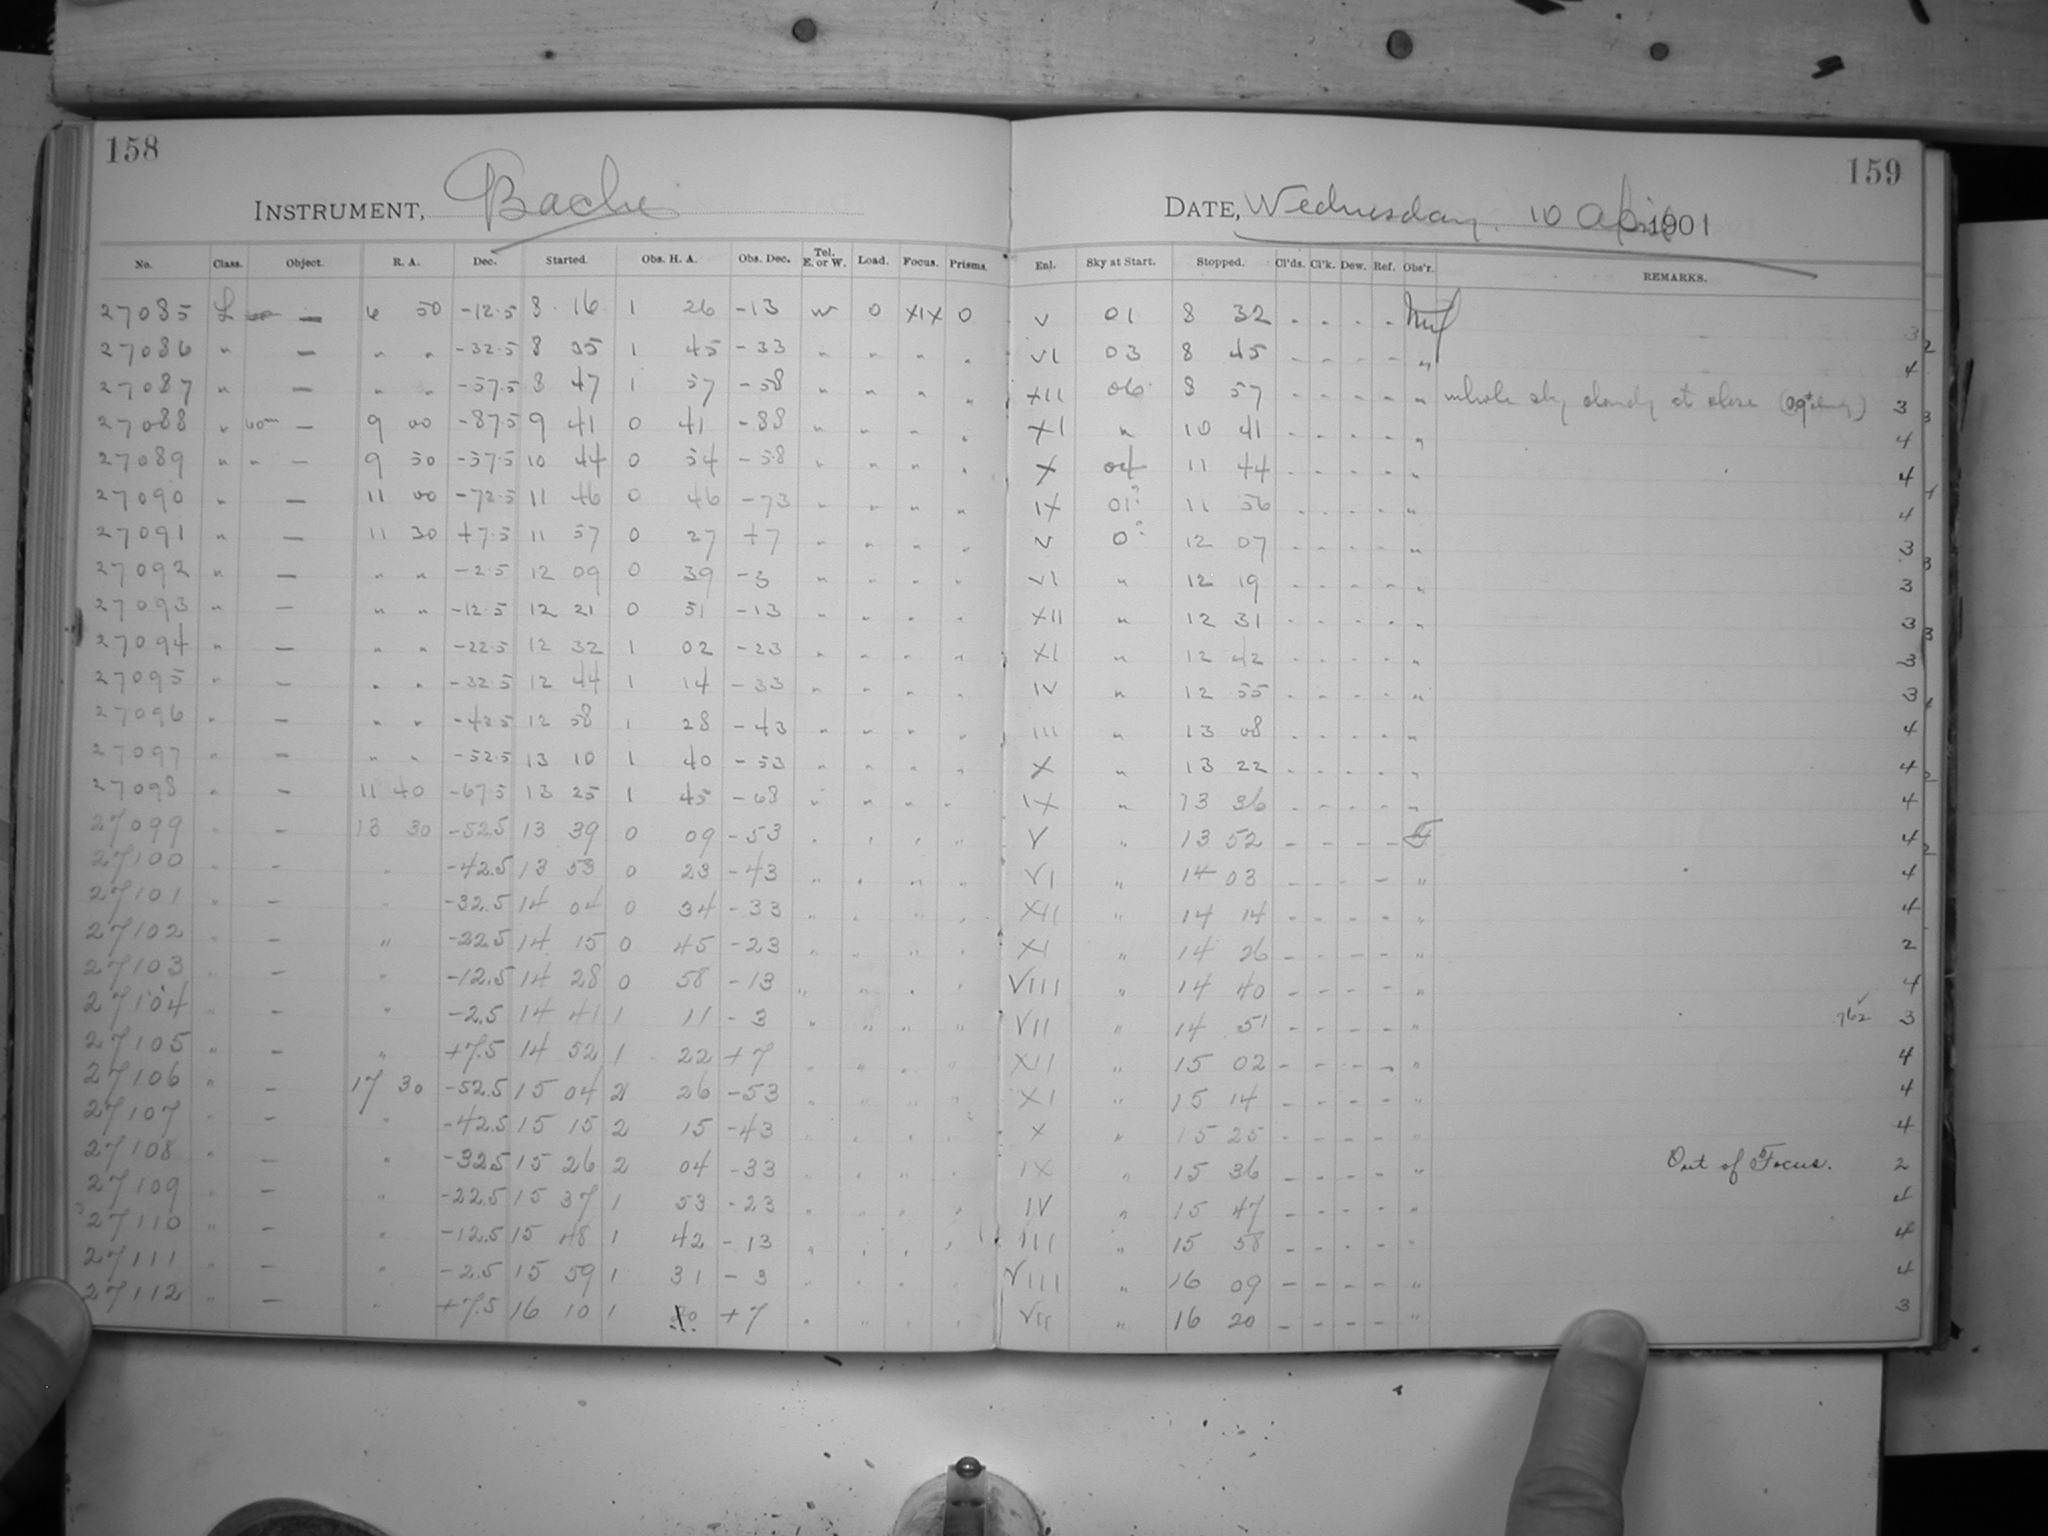 158
INSTRUMENT, Bache
No. Class. Object. R. A. Dec. Started. Obs. H. A. Obs. Dec. Tel. E. or W. Load. Focus. Prisms.
27085 L — 6 50 -12.5 8 16 1 26 -13 W 0 XIX 0
27086 " — " " -32.5 8 35 1 45 -33 " " " "
27087 " — " " -57.5 8 47 1 57 -58 " " " "
27088 " 60m — 9 00 -87.5 9 41 0 41 -88 " " " "
27089 " " — 9 50 -57.5 10 44 0 54 -58 " " " "
27090 " — 11 00 -72.5 11 46 0 46 -73 " " " "
27091 " — 11 30 +7.5 11 57 0 27 +7 " " " "
27092 " — " " -2.5 12 09 0 39 -3 " " " "
27093 " — " " -12.5 12 21 0 51 -13 " " " "
27094 " — " " -22.5 12 32 1 02 -23 " " " "
27095 " — " " -32.5 12 44 1 14 -33 " " " "
27096 " — " " -42.5 12 58 1 28 -43 " " " "
27097 " — " " -52.5 13 10 1 40 -53 " " " "
27098 " — 11 40 -67.5 13 25 1 45 -68 " " " "
27099 " — 13 30 -52.5 13 39 0 09 -53 " " " "
27100 " — " -42.5 13 53 0 23 -43 " " " "
27101 " — " -32.5 14 04 0 34 -33 " " " "
27102 " — " -22.5 14 15 0 45 -23 " " " "
27103 " — " -12.5 14 28 0 58 -13 " " " "
27104 " — " -2.5 14 41 1 11 -3 " " " "
27105 " — " +7.5 14 52 1 22 +7 " " " "
27106 " — 17 30 -52.5 15 04 2 26 -53 " " " "
27107 " — " -42.5 15 15 2 15 -43 " " " "
27108 " — " -32.5 15 26 2 04 -33 " " " "
27109 " — " -22.5 15 37 1 53 -23 " " " "
27110 " — " -12.5 15 48 1 42 -13 " " " "
27111 " — " -2.5 15 59 1 31 -3 " " " "
27112 " — " +7.5 16 10 1 +7 " " " "
159
DATE, Wednesday 10 April 1901
Enl. Sky at Start. Stopped. Cl'ds. Cl'k. Dew. Ref. Obs'r. REMARKS.
V 01 8 32 - - - - 3
VI 03 8 45 - - - - " 4
XII 06 8 57 - - - - " whole sky cloudy at close 3
XI " 10 41 - - - - " 4
X 04 11 44 - - - - " 4
IX 01? 11 56 - - - - " 4
V 0? 12 07 - - - - " 3
VI " 12 19 - - - - " 3
XII " 12 31 - - - - " 3
XI " 12 42 - - - - " 3
IV " 12 55 - - - - " 3
III " 13 08 - - - - " 4
X " 13 22 - - - - " 4
IX " 13 36 - - - - " 4
V " 13 52 - - - - F 4
VI " 14 03 - - - - " 4
XII " 14 14 - - - - " 4
XI " 14 26 - - - - " 2
VIII " 14 40 - - - - " 4
VII " 14 51 - - - - " 3
XII " 15 02 - - - - " 4
XI " 15 14 - - - - " 4
X " 15 25 - - - - " 4
IX " 15 36 - - - - " Out of Focus. 2
IV " 15 47 - - - - " 4
III " 15 58 - - - - " 4
VIII " 16 09 - - - - " 4
VII " 16 20 - - - - " 3